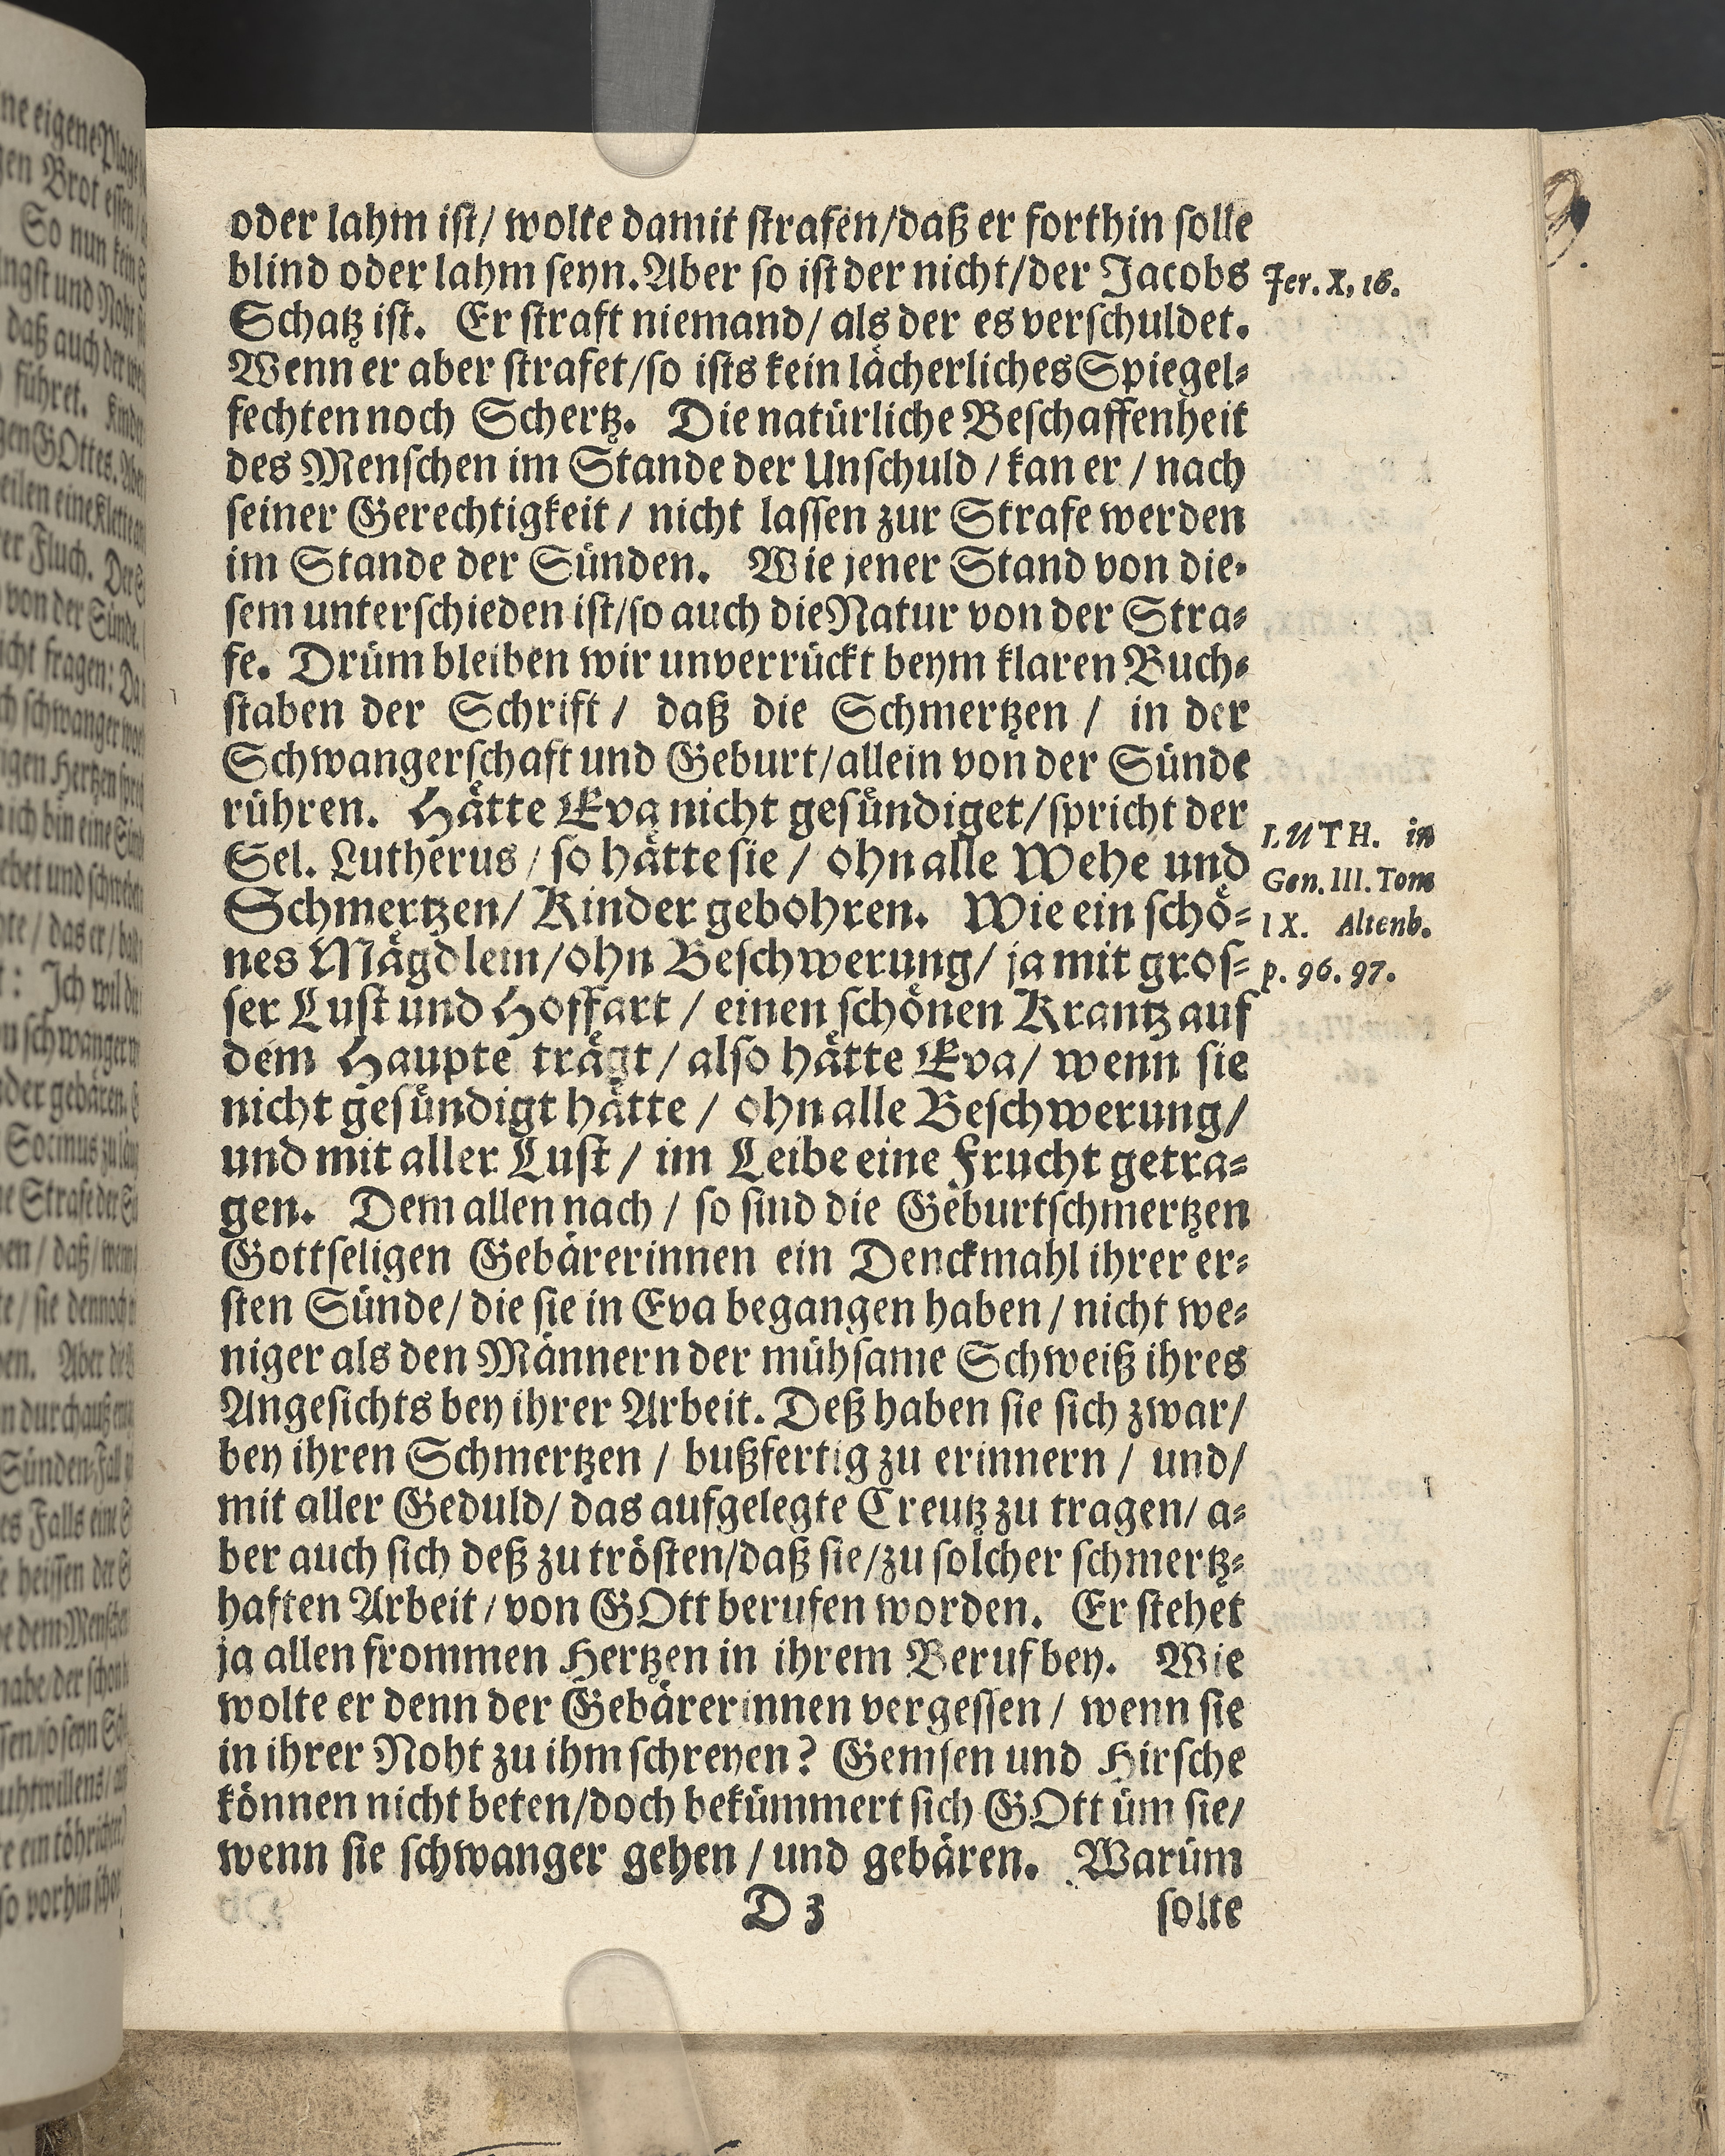 oder lahm iſt/ wolte damit ſtrafen/daß er forthin ſolle
blind oder lahm ſeyn. Aber ſo iſt der nicht/der Jacobs
Schatz iſt. Er ſtraft niemand/ als der es verſchuldet.
Wenn er aber ſtrafet/ſo iſts kein laͤcherliches Spiegel⸗
fechten noch Schertz. Die natuͤrliche Beſchaffenheit
des Menſchen im Stande der Unſchuld / kan er / nach
ſeiner Gerechtigkeit / nicht laſſen zur Strafe werden
im Stande der Suͤnden. Wie jener Stand von die⸗
ſem unterſchieden iſt/ſo auch die Natur von der Stra⸗
fe. Druͤm bleiben wir unverruͤckt beym klaren Buch⸗
ſtaben der Schrift / daß die Schmertzen / in der
Schwangerſchaft und Geburt/allein von der Suͤnde
ruͤhren. Haͤtte Eva nicht geſuͤndiget/ſpricht der
Sel. Lutherus / ſo haͤtte ſie / ohn alle Wehe und
Schmertzen/ Kinder gebohren. Wie ein ſchoͤ⸗
nes Maͤgdlein/ohn Beſchwerung/ ja mit groſ⸗
ſer Luſt und Hoffart / einen ſchoͤnen Krantz auf
dem Haupte traͤgt / alſo haͤtte Eva/ wenn ſie
nicht geſuͤndigt haͤtte / ohn alle Beſchwerung/
und mit aller Luſt / im Leibe eine Frucht getra⸗
gen. Dem allen nach / ſo ſind die Geburtſchmertzen
Gottſeligen Gebaͤrerinnen ein Denckmahl ihrer er⸗
ſten Suͤnde/ die ſie in Eva begangen haben / nicht we⸗
niger als den Maͤnnern der muͤhſame Schweiß ihres
Angeſichts bey ihrer Arbeit. Deß haben ſie ſich zwar/
bey ihren Schmertzen / bußfertig zu erinnern / und/
mit aller Geduld/ das aufgelegte Creutz zu tragen/ a⸗
ber auch ſich deß zu troͤſten/daß ſie/zu ſolcher ſchmertz⸗
haften Arbeit / von GOtt berufen worden. Er ſtehet
ja allen frommen Hertzen in ihrem Beruf bey. Wie
wolte er denn der Gebaͤrerinnen vergeſſen / wenn ſie
in ihrer Noht zu ihm ſchreyen? Gemſen und Hirſche
koͤnnen nicht beten/doch bekuͤmmert ſich GOtt uͤm ſie/
wenn ſie ſchwanger gehen / und gebaͤren. Waruͤm
D 3 ſolte
Jer. X, 16.
LUTH. in
Gen. III. Tom
IX. Altenb.
p. 96. 97.